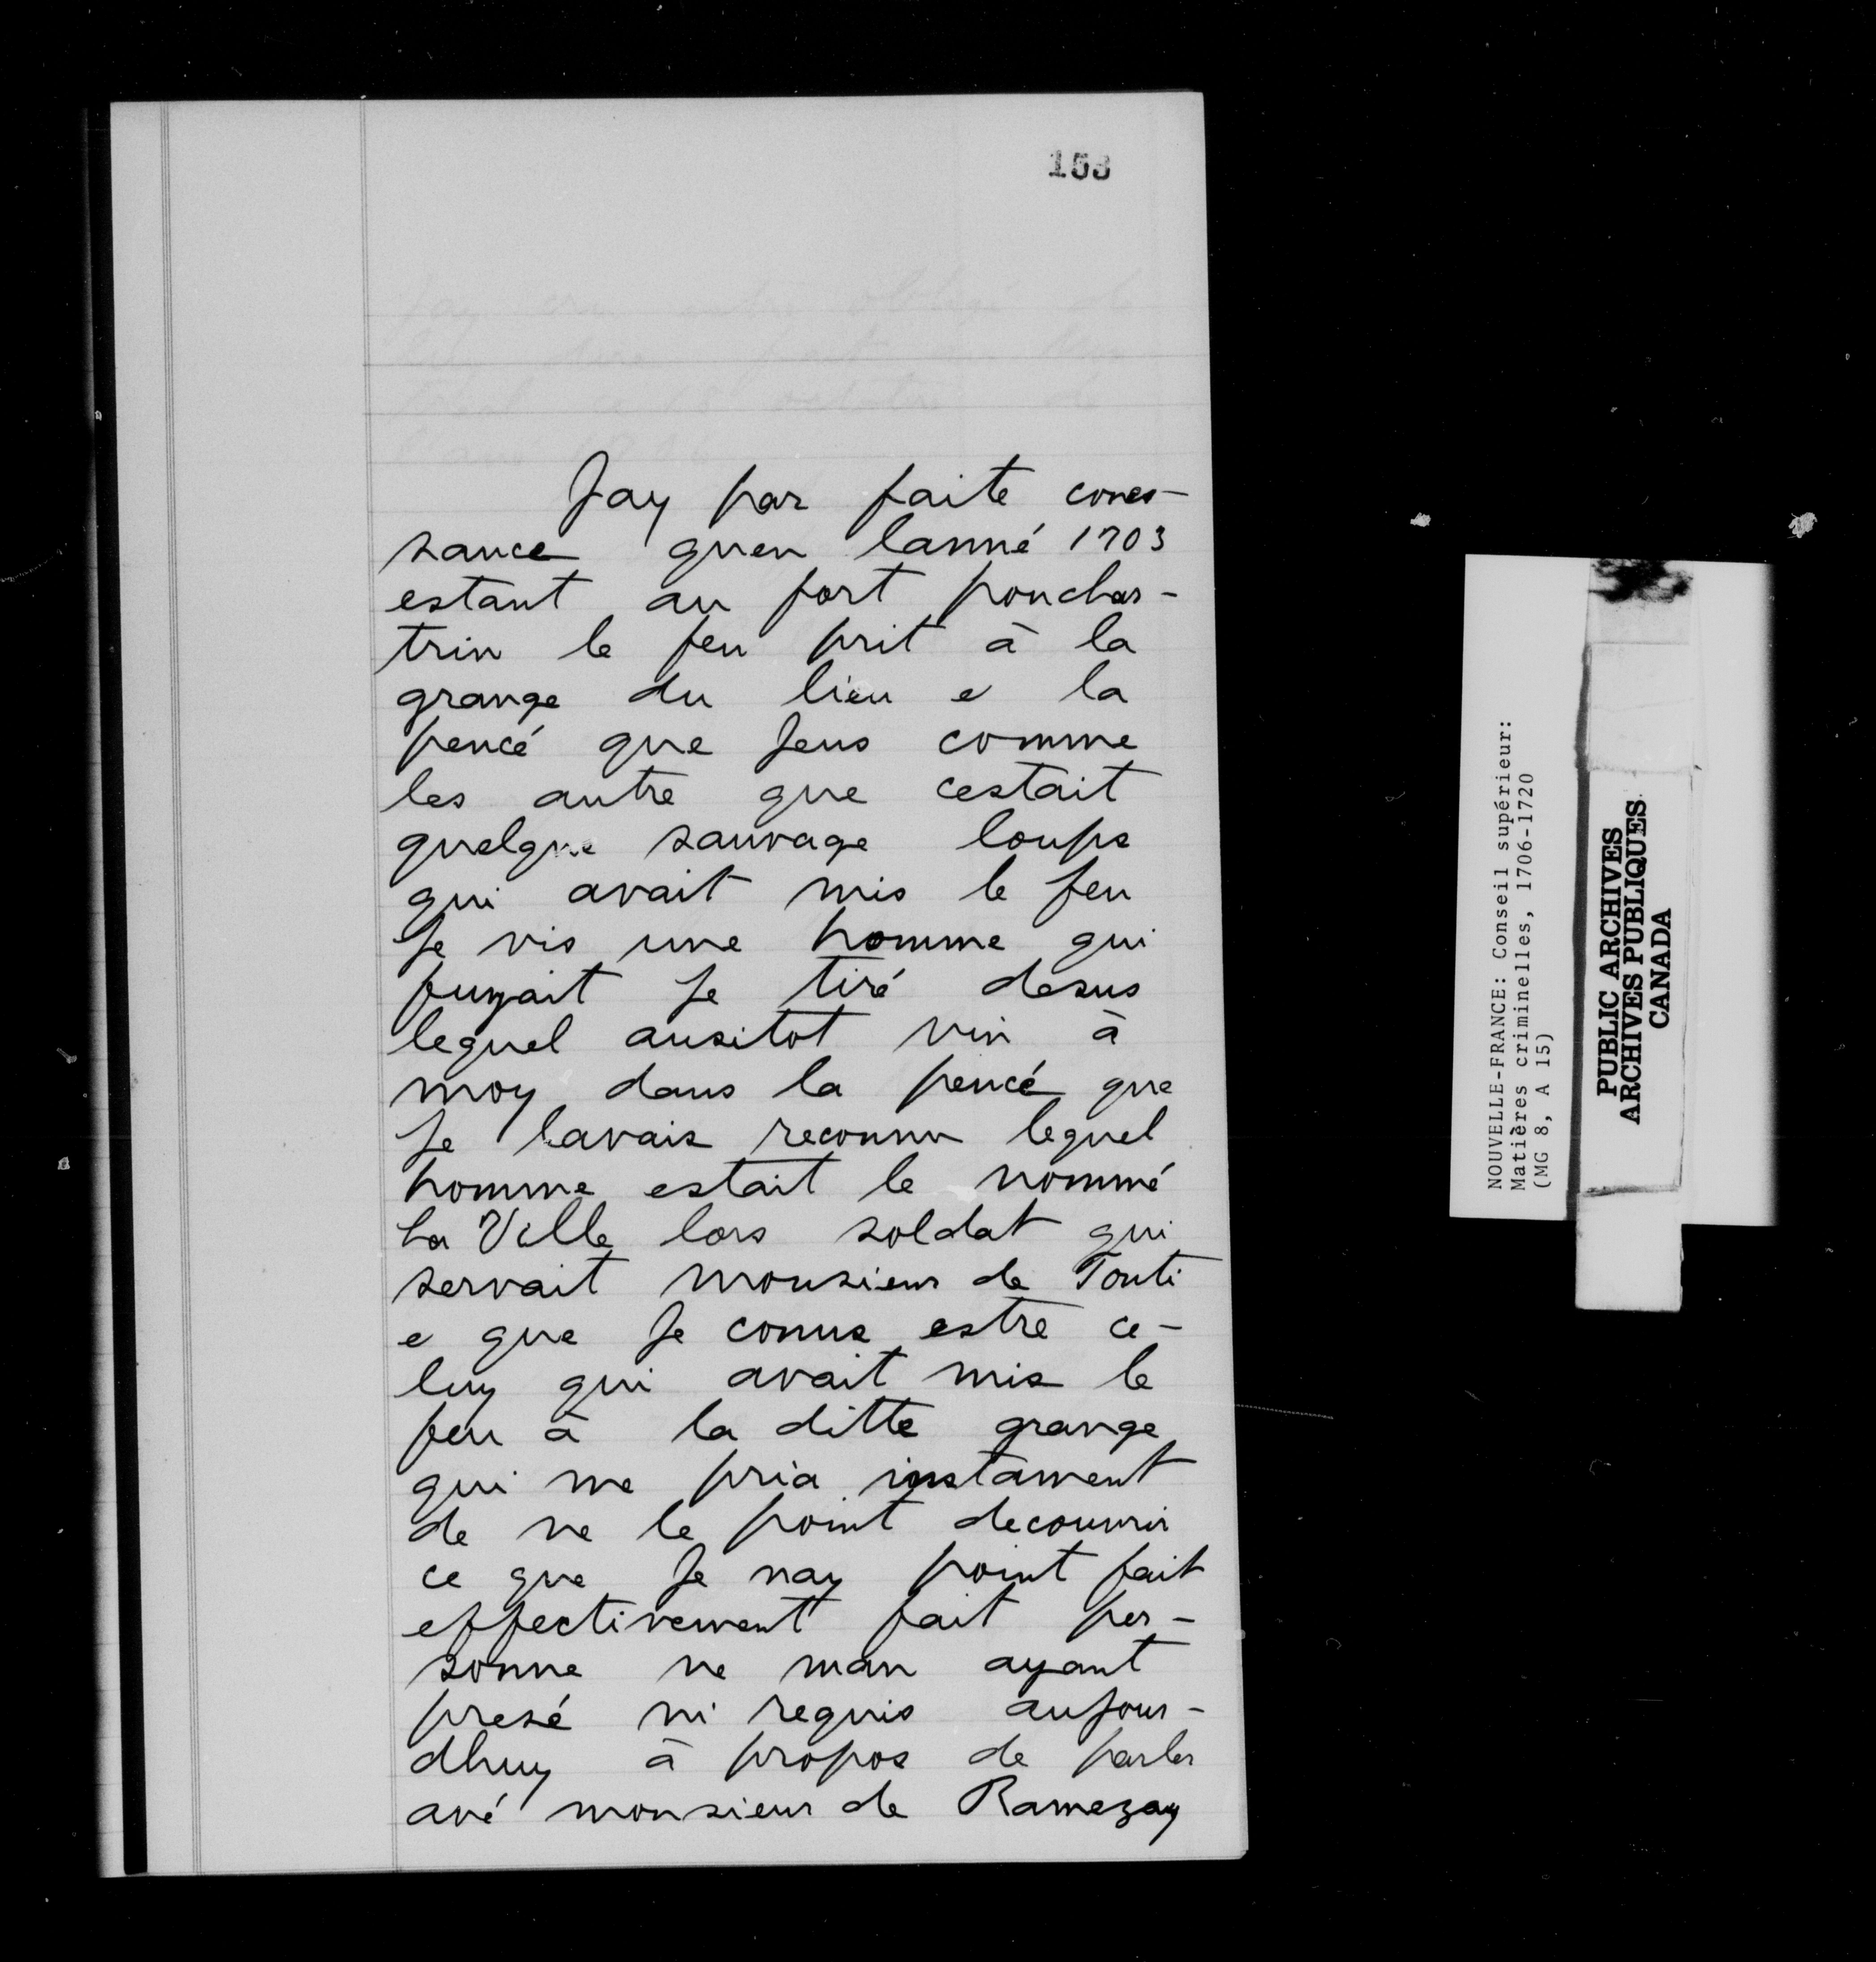 153
Jay par faite cones-
sance quen lanné 1703
estant au fort ponchar-
trin le feu prit à la
grange du lieu e la
pencé que Jeus comme
les autre que cestait
quelque sauvage loups
qui avait mis le feu
Je vis une homme qui
fuyait Je tiré desus
lequel ausitot vin à
moy dans la pencé que
Je lavais reconnu lequel
homme estait le nommé
La Ville lors soldat qui
servait monsieur de Tonti
e que Je conus estre ce-
luy qui avait mis le
feu à la ditte grange
qui me pria instament
de ne le point decouvrir
ce que Je nay point fait
effectivement fait per-
sonne ne man ayant
presé ni requis aujour-
dhuy à propos de parler
avé monsieur de Ramezay
NOUVELLE-FRANCE: Conseil supérieur:
Matières criminelles, 1706-1720
(MG 8, A 15)
PUBLIC ARCHIVES
ARCHIVES PUBLIQUES
CANADA